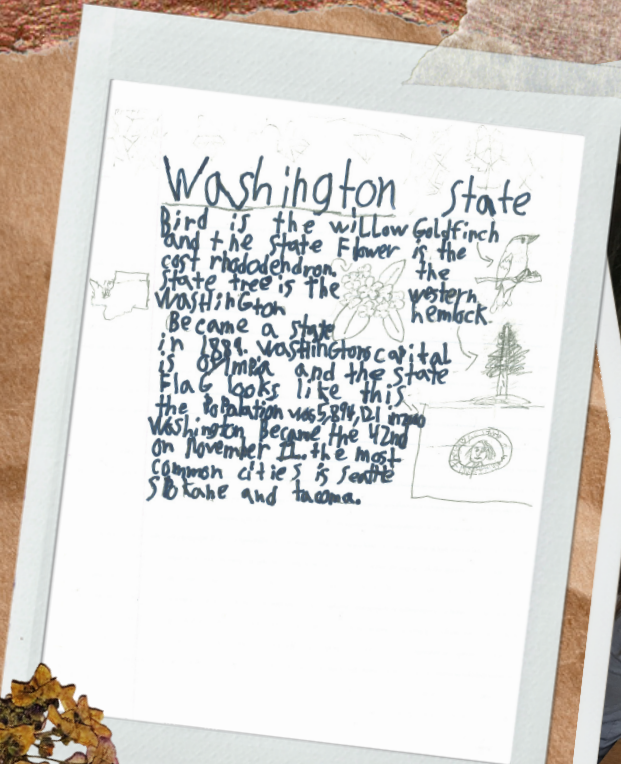 Washington State
Bird is the willow Goldfinch
and the state Flower is the
cost rhododendron. the
state tree is the western
WasHinGton hemlock.
Became a state
in 1889. washingtons capital
is olympia and the state
FlaG looks like this
the Population was 5,894,121 in
Washington Became the 42nd
on November 11. the most
common cities is Seattle
SPokane and tacoma.